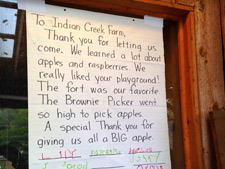 To Indian Creek Farm,
Thank you for letting us
come. We learned a lot about
apples and raspberries. We
really liked your playground!
The fort was our favorite
The Brownie Picker went
so high to pick apples.
A special Thank you for
giving us all a BIG apple.